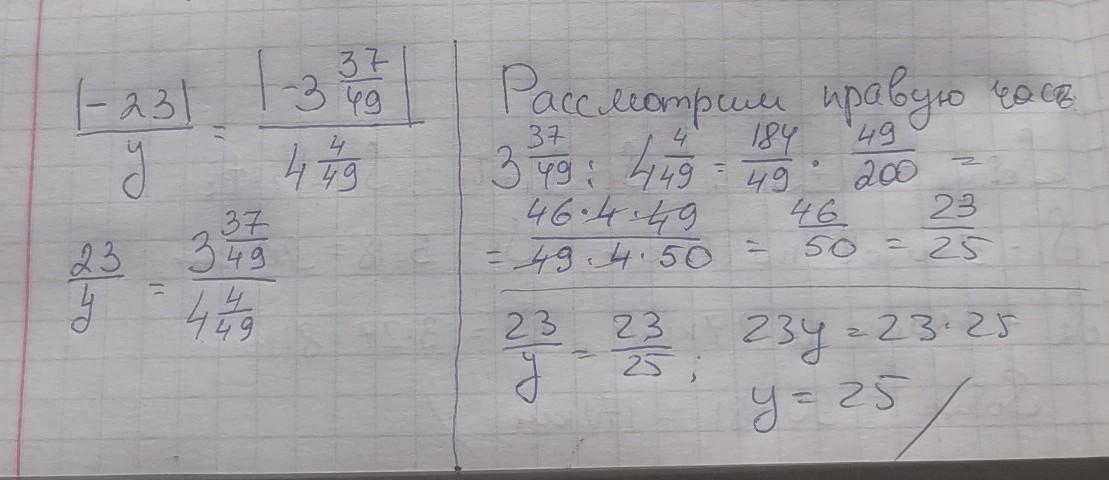 |-23|/y = |-3 37/49|/4 4/49
23/y = 3 37/49/4 4/49
Рассмотрим правую часть.
3 37/49 : 4 4/49 = 184/49 · 49/200 =
= 46·4·49/49·4·50 = 46/50 = 23/25
23/y = 23/25; 23y = 23·25
y = 25